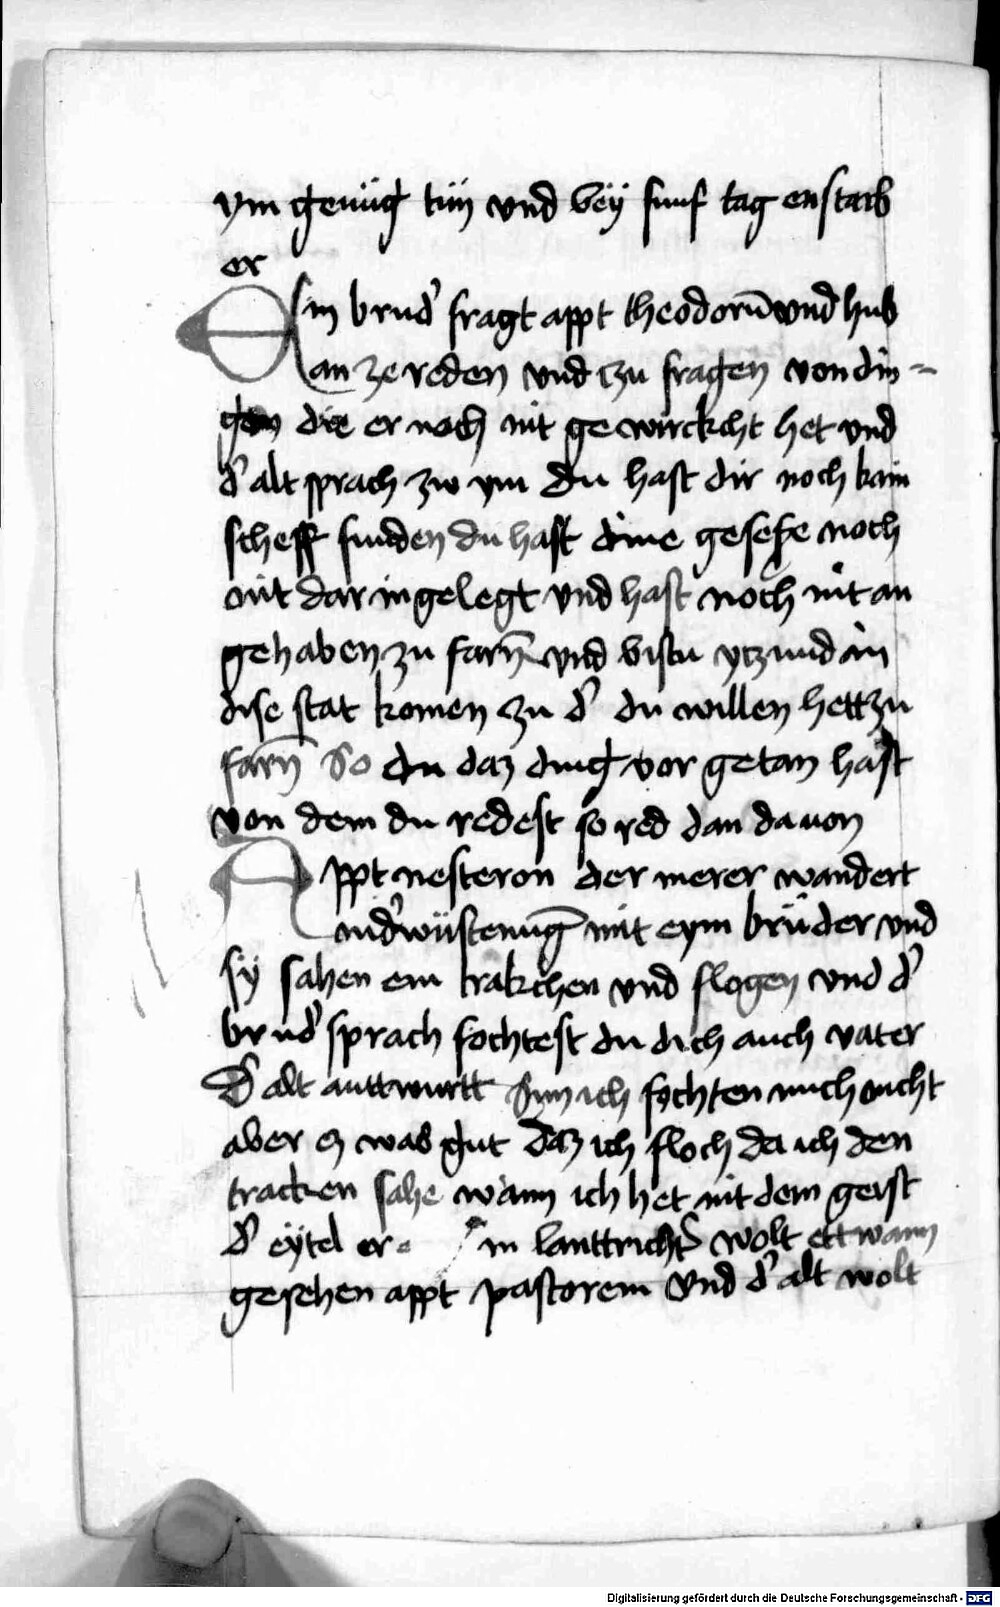 ym genüg tün vnd beÿ funf tag enstarb
er
Ein brud' fragt appt theodorū vnd hub
an ze reden vnd tzu fragen von din=
gen die er noch nit gewirckcht het vnd
d' alt sprach zw ym du hast dir noch kain
scheff funden du hast deine geseße noch
nit dar in gelegt vnd hast noch nit an
gehaben zu farn̄ vnd bistu ytzund in
dise stat komen zu d' du willen hett zu
farn̄ So du daz ding vor getan hast
von dem du redest so red dan dauon
Appt nesteron der merer wandert
in d' wüstenūg mit eym brüder vnd
sÿ sahen ein trakchen vnd flogen vnd d'
brud' sprach fochtest du dich auch vater
D' alt anttwurtt Sun ich fochten mich nicht
aber es was gut daz ich floch da ich den
tracken sahe wann ich het nit dem geist
d' eÿtel er in lanttricht' wolt ettwann
gesehen appt pastorem Vnd d' alt wolt
Digitalisierung gefördert durch die Deutsche Forschungsgemeinschaft - DFG